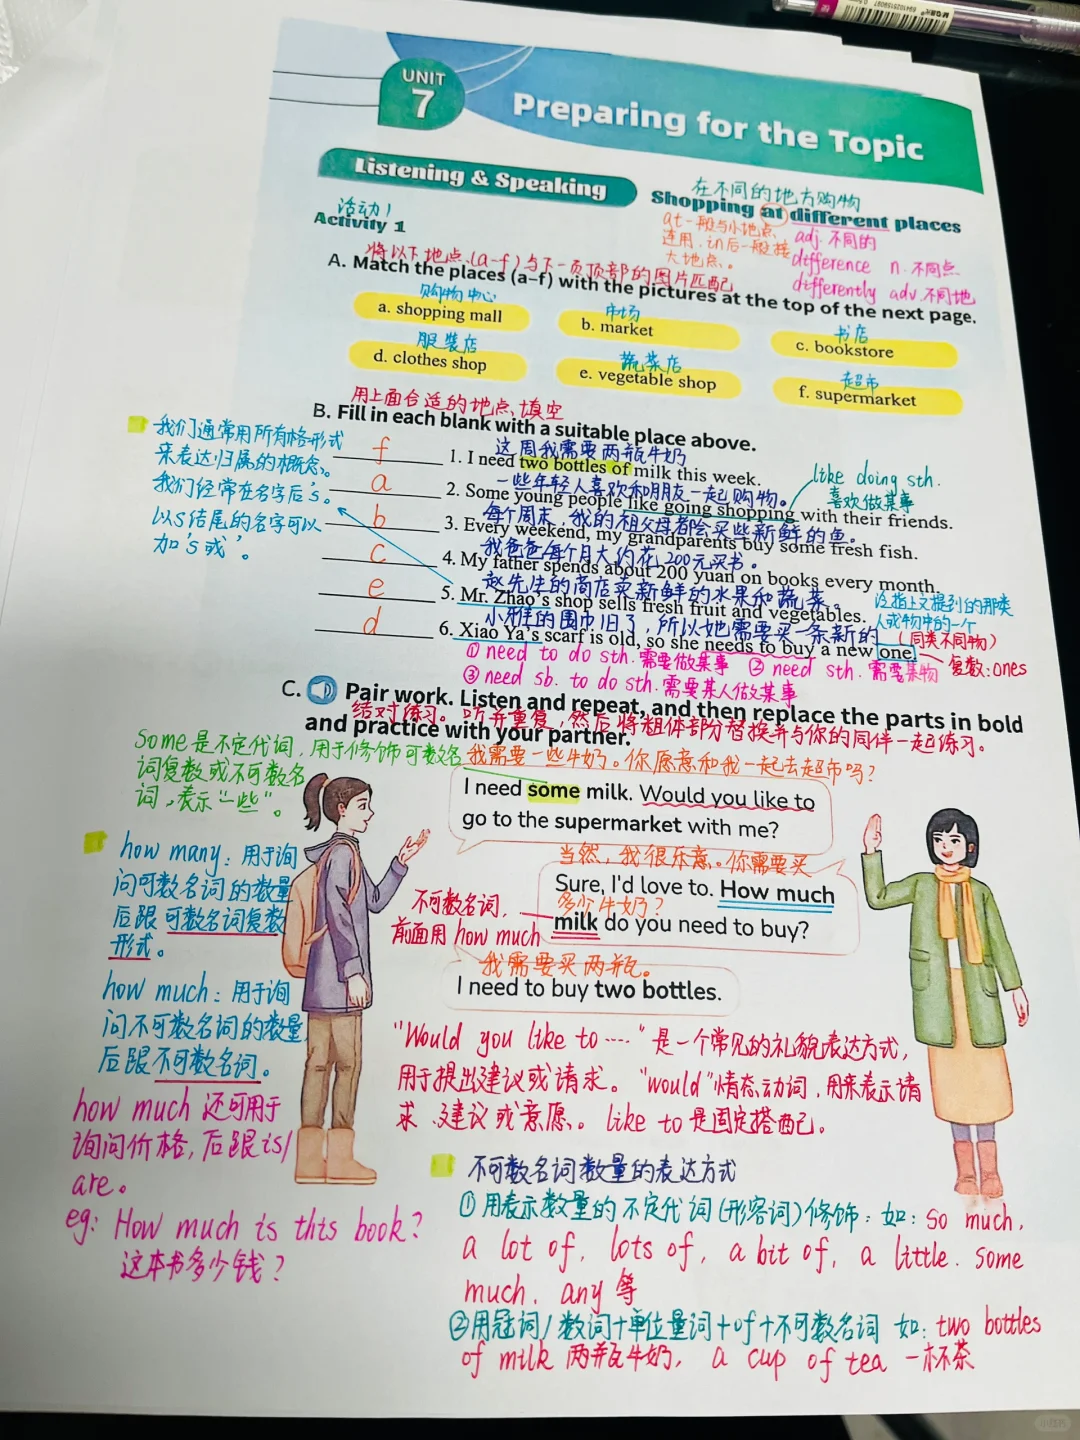 UNIT
7
Preparing for the Topic
Listening & Speaking
在不同的地方购物
Shopping at different places
at一般与小地点
连用，in后一般接
大地点。
adj. 不同的
difference n. 不同点
differently adv. 不同地
活动1
Activity 1
将以下地点(a-f)与下一页顶部的图片匹配
A. Match the places (a–f) with the pictures at the top of the next page.
购物中心
a. shopping mall
市场
b. market
书店
c. bookstore
服装店
d. clothes shop
蔬菜店
e. vegetable shop
超市
f. supermarket
用上面合适的地点填空
B. Fill in each blank with a suitable place above.
这周我需要两瓶牛奶
f 1. I need two bottles of milk this week.
一些年轻人喜欢和朋友一起购物。
a 2. Some young people like going shopping with their friends.
like doing sth.
喜欢做某事
每个周末，我的祖父母都会买些新鲜的鱼。
b 3. Every weekend, my grandparents buy some fresh fish.
我爸爸每个月大约花200元买书。
c 4. My father spends about 200 yuan on books every month.
赵先生的商店卖新鲜的水果和蔬菜。
e 5. Mr. Zhao's shop sells fresh fruit and vegetables.
小雅的围巾旧了，所以她需要买一条新的
d 6. Xiao Ya's scarf is old, so she needs to buy a new one.
泛指上文提到的那类
人或物中的一个
(同类不同物)
复数：ones
① need to do sth. 需要做某事 ② need sth. 需要某物
③ need sb. to do sth. 需要某人做某事
我们通常用所有格形式
来表达归属的概念。
我们经常在名字后's。
以s结尾的名字可以
加's或'。
C. Pair work. Listen and repeat, and then replace the parts in bold
结对练习。听并重复，然后将粗体部分替换并与你的同伴一起练习。
and practice with your partner.
some是不定代词，用于修饰可数名
词复数或不可数名
词，表示“一些”。
我需要一些牛奶。你愿意和我一起去超市吗？
I need some milk. Would you like to
go to the supermarket with me?
当然，我很乐意。你需要买
Sure, I'd love to. How much
多少牛奶？
milk do you need to buy?
不可数名词，
前面用how much
我需要买两瓶。
I need to buy two bottles.
how many：用于询
问可数名词的数量
后跟可数名词复数
形式。
how much：用于询
问不可数名词的数量
后跟不可数名词。
how much还可用于
询问价格，后跟is/
are。
eg: How much is this book?
这本书多少钱？
"Would you like to ····"是一个常见的礼貌表达方式，
用于提出建议或请求。"would"情态动词，用来表示请
求、建议或意愿。like to是固定搭配。
不可数名词数量的表达方式
①用表示数量的不定代词(形容词)修饰：如：so much，
a lot of，lots of，a bit of，a little. some
much. any等
②用冠词/数词+单位量词+of+不可数名词 如：two bottles
of milk 两瓶牛奶，a cup of tea 一杯茶